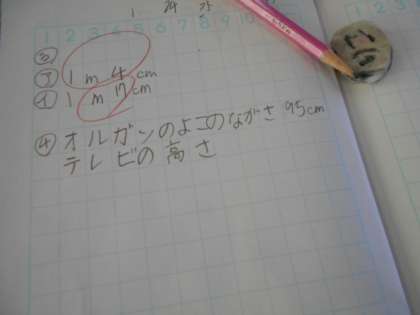 1 2 3 4 5 6 7 8 9 10
③
ア 1 m 4 cm
イ 1 m 17 cm
④ オルガンのよこのながさ 95cm
テレビの高さ